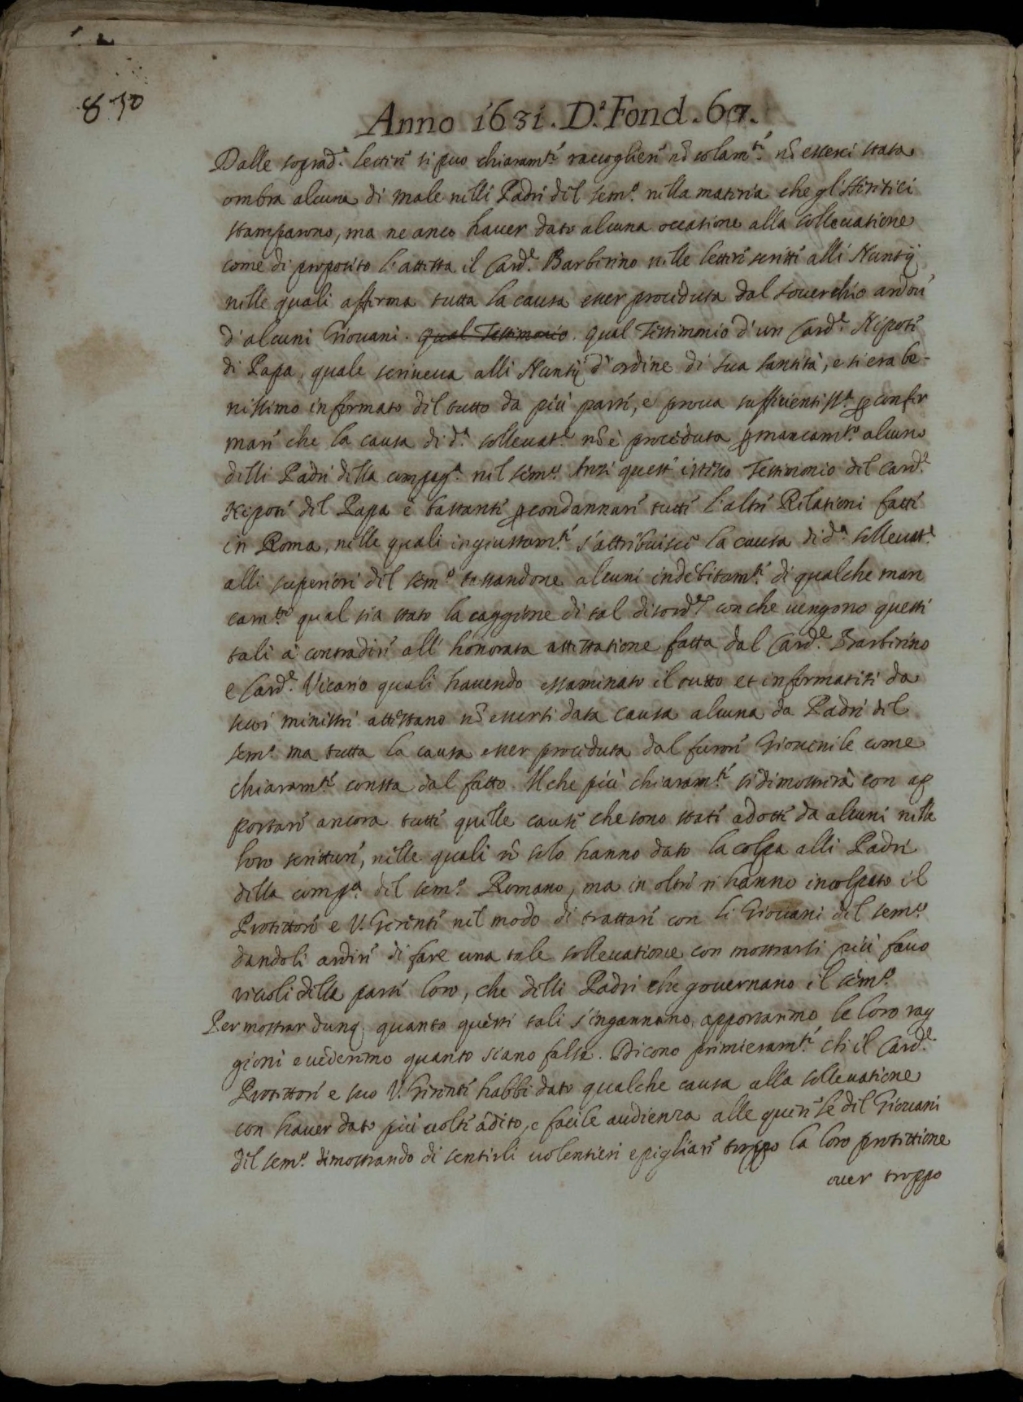 850
Anno 1631. D.ª Fond. 67.
Dalle soprad.e lettere si puo chiaram.te raccogliere nõ solam.te nõ esserci stata
ombra alcuna di male nelli Padri del sem.o nella materia che gl'Heretici
stamparono, ma ne anco haver dato alcuna occasione alla sollevatione
come di proposito l'attesta il Card.e Barberino nelle lettere scritte alli Nuntij
nelle quali afferma tutta la causa esser proceduta dal soverchio ardore
d'alcuni Giovani. qual Testimonio. qual Testimonio d'un Card.e Nepote
di Papa, quale scriveva alli Nuntij d'ordine di sua santità, e si era be-
nissimo informato del tutto da più parti, e prova sufficientiss.a p confir
mare che la causa di d.a sollevat.e nõ è proceduta p mancam.to alcuno
delli Padri della compag.a nel sem.o Anzi questo istesso Testimonio del Card.e
Nepote del Papa è bastante p condannare tutte l'altre Relationi fatte
in Roma, nelle quali ingiustam.te s'attribuisce la causa di d.a sollevat.e
alli superiori del sem.o tassandone alcuni indebitam.te di qualche man
cam.to qual sia stato la caggione di tal disord.e con che vengono questi
tali à contradire all'honorata attestatione fatta dal Card.e Barberino
e Card.e Vicario quali havendo essaminato il tutto et informatisi da
suoi ministri attestano nõ essersi data causa alcuna da Padri del
sem.o ma tutta la causa esser proceduta dal furore Giovenile come
chiaram.te consta dal fatto. Il che più chiaram.te si dimostrerà con ap
portare ancora tutte quelle cause che sono state adotte da alcuni nelle
loro scritture, nelle quali nõ solo hanno dato la colpa alli Padri
della comp.a del sem.o Romano, ma in oltre ri hanno incolpato il
Protettore e V. Gerente nel modo di trattare con li Giovani del sem.o
dandoli ardire di fare una tale sollevatione con mostrarsi più favo
revoli della parte loro, che delli Padri che governano il sem.o
Per mostrar dunq. quanto questi tali s'ingannano, apportaremo le loro rag
gioni e vederemo quanto siano false. Dicono primieram.te che il Card.e
Protettore e suo V. Gerente habbi dato qualche causa alla sollevatione
con haver dato più volte adito, e facile audienza alle querele del Giovani
del sem.o dimostrando di sentirli volentieri e pigliare troppo la loro protettione
over troppo